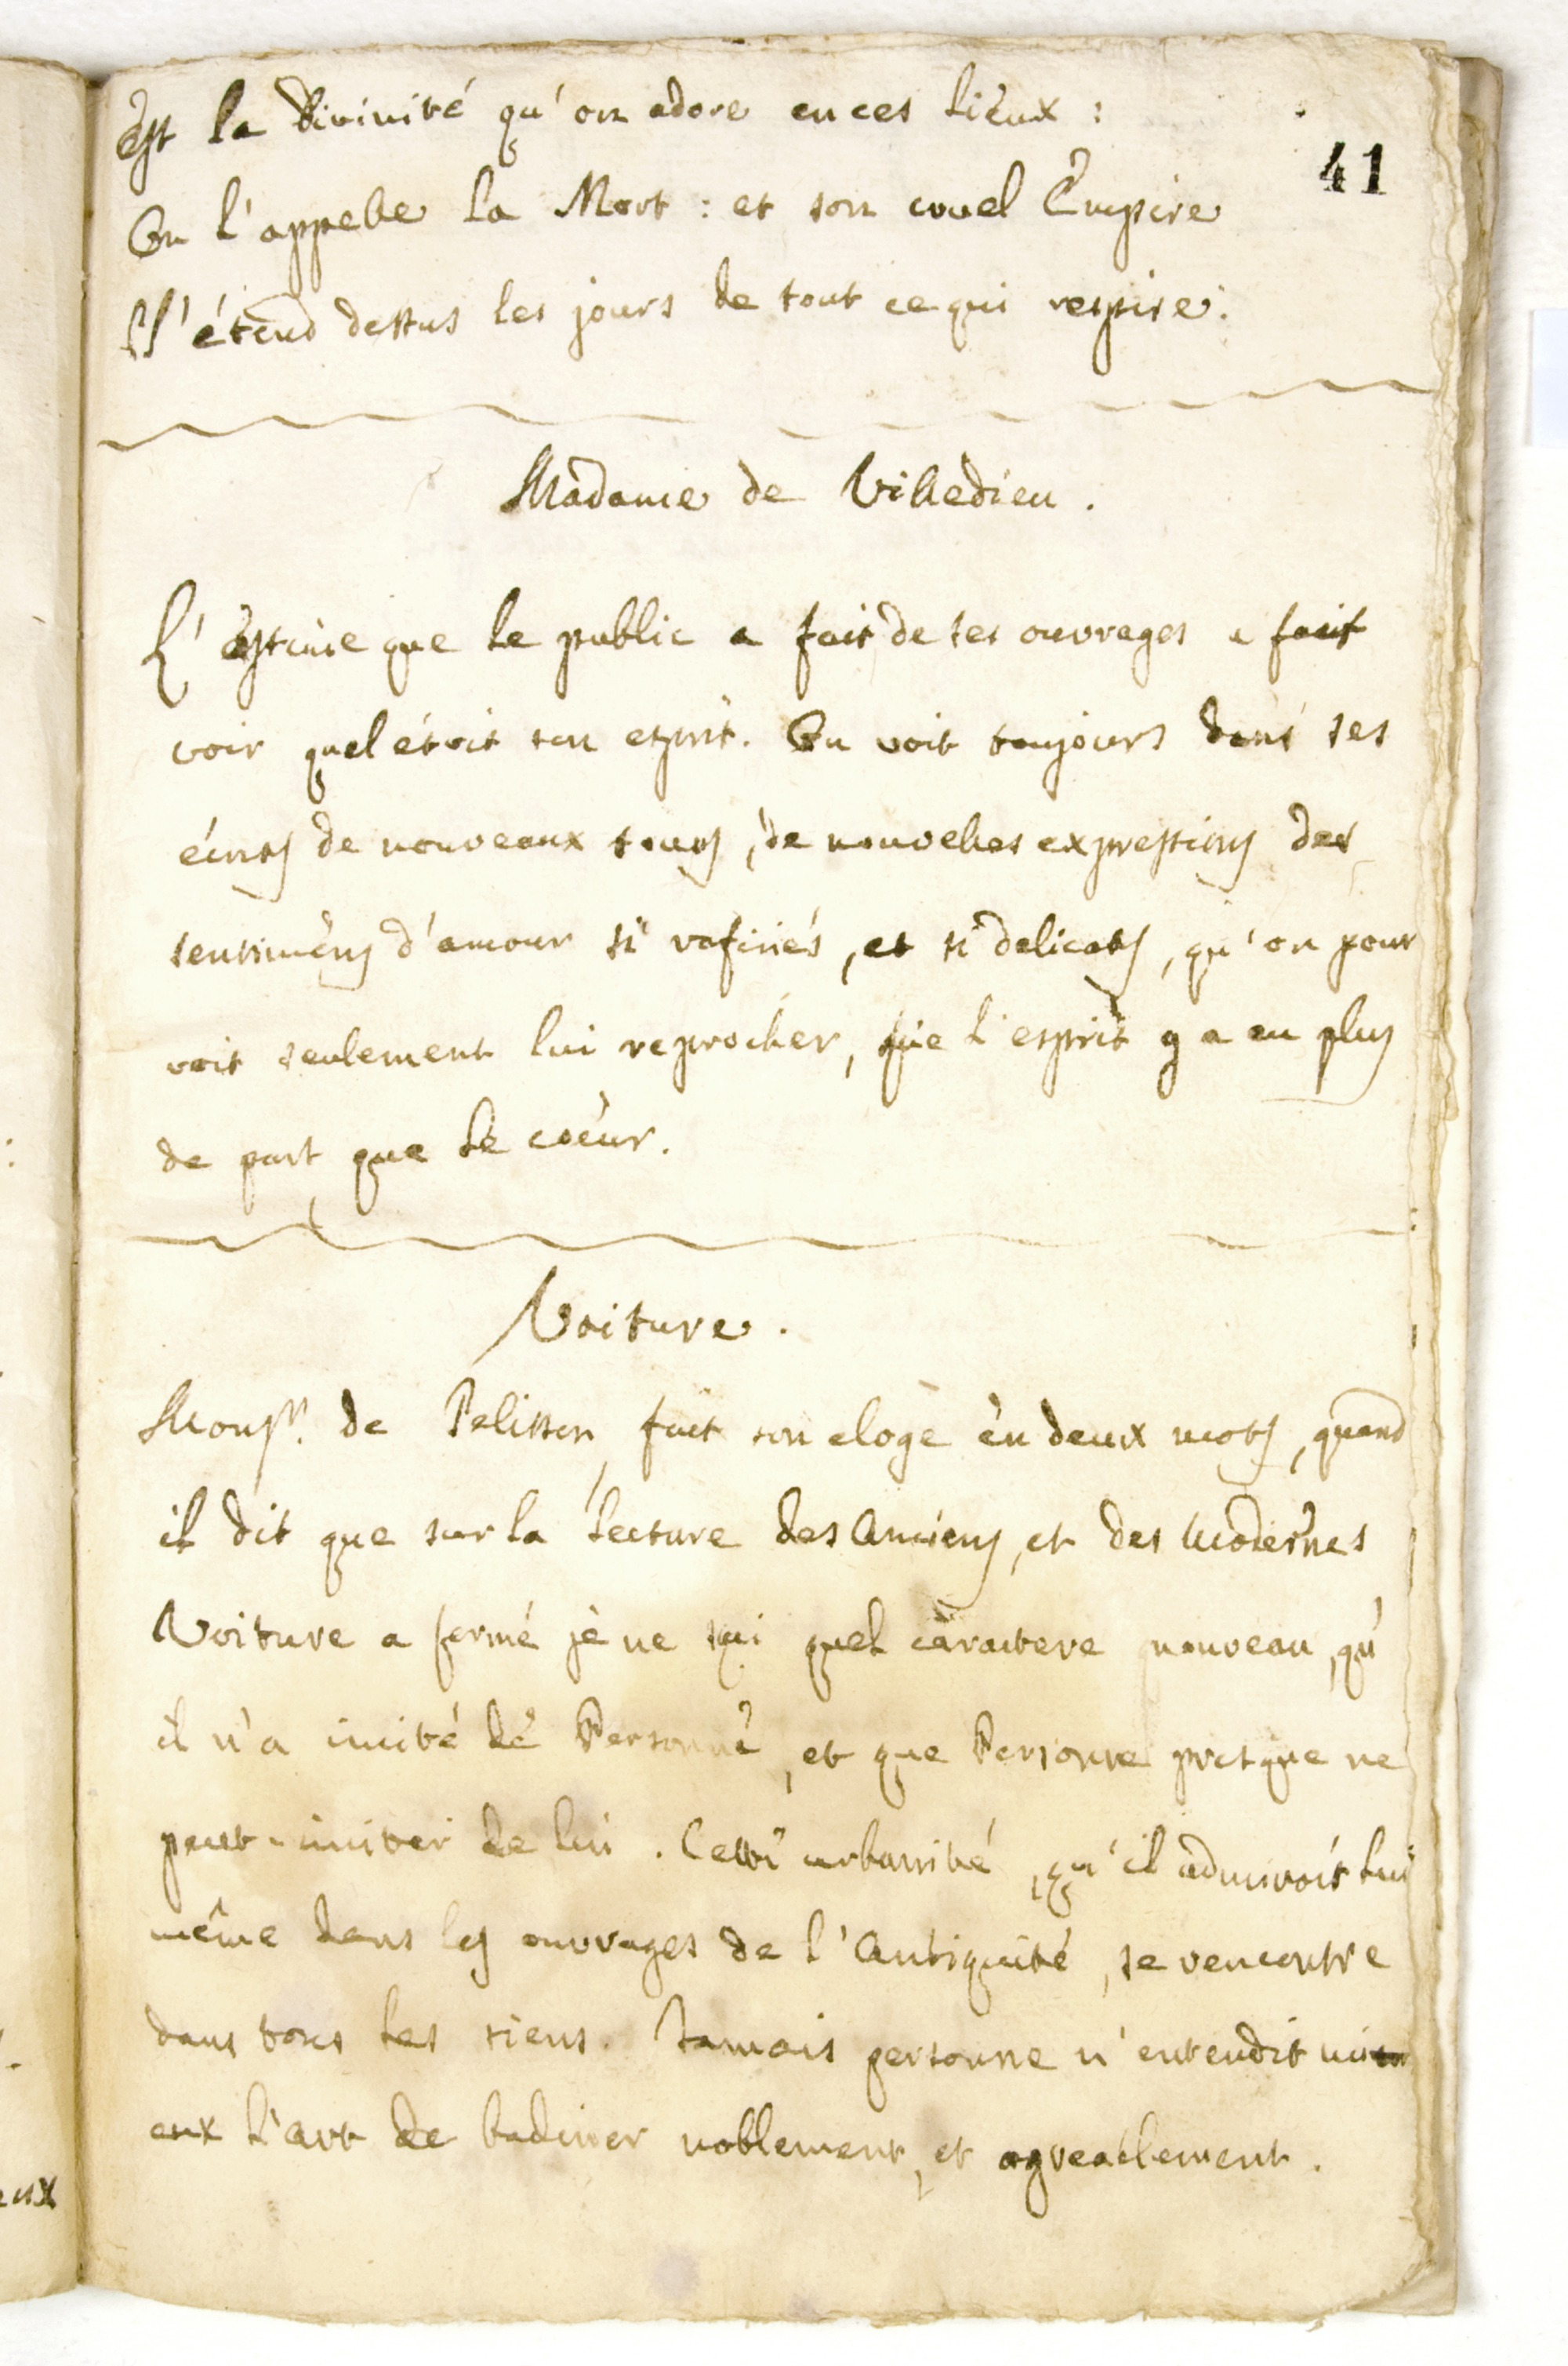 est la Divinité qu'on adore en ces lieux :
41
On l'appelle la Mort : et son cruel Empire
S'étend dessus les jours de tout ce qui respire.
Madame de Villedieu .
L'estime que le public a fait de ses ouvrages a fait
voir quel étoit son esprit. On voit toujours dans ses
écrits de nouveaux tours, de nouvelles expressions des
sentimens d'amour si rafinés, et si delicats, qu'on pour
roit seulement lui reprocher, que l'esprit y a eu plus
de part que le coeur.
Voiture .
Monsr. de Pelisson fait son eloge en deux mots, quand
il dit que sur la lecture des Anciens, et des Modernes
Voiture a formé je ne sai quel caractere nouveau, qu'
il n'a imité de Personne, et que Personne presque ne
peut imiter de lui . Cette urbanité, qu'il admiroit lui
même dans les ouvrages de l'Antiquité, se rencontre
dans tous les siens. Jamais personne n'entendit mi
eux l'art de badiner noblement, et agreablement .
eux